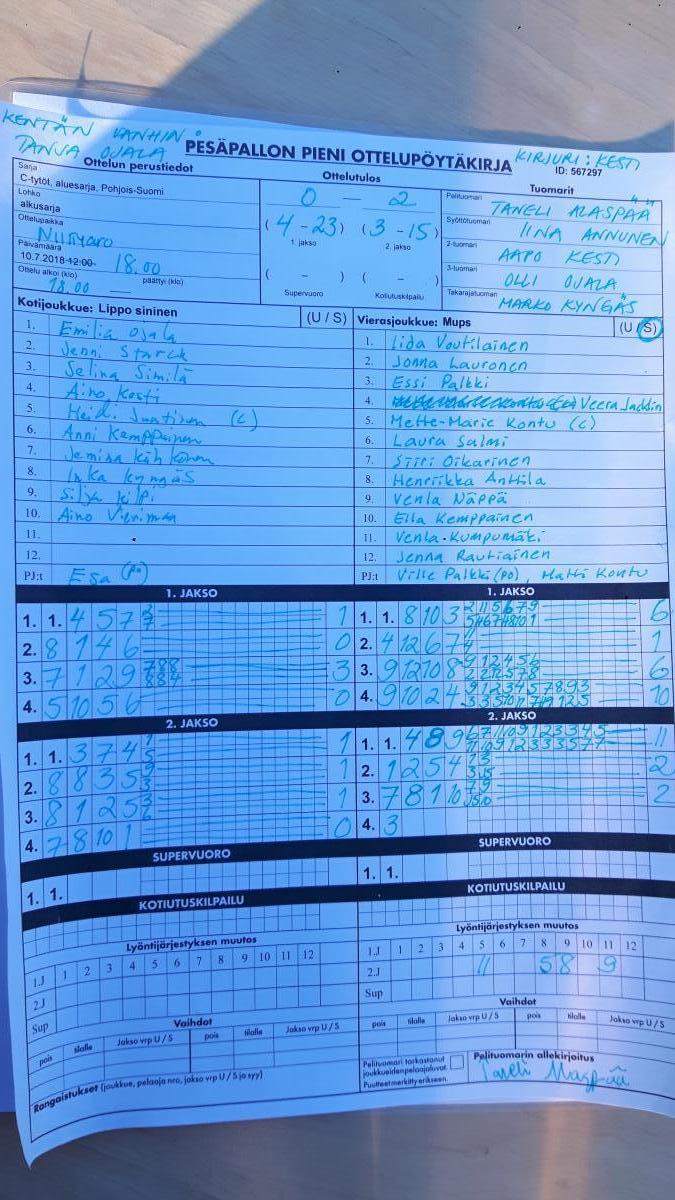 KENTÄN VANHIN
TANJA OJALA
PESÄPALLON PIENI OTTELUPÖYTÄKIRJA
KIRJURI: KESTI
ID: 567297
Ottelun perustiedot
Sarja
C-tytöt, aluesarja, Pohjois-Suomi
Lohko
alkusarja
Ottelupaikka
Niittyaro
Päivämäärä
10.7.2018 12:00 18.00
Ottelu alkoi (klo) päättyi (klo)
18.00
Ottelutulos
0 - 2
(4 - 23) (3 - 15)
1. jakso 2. jakso
( - ) ( - )
Supervuoro Kotiutuskilpailu
Tuomarit
Pelituomari
TANELI ALASPÄÄ
Syöttötuomari
IINA ANNUNEN
2-tuomari
AAPO KESTI
3-tuomari
OLLI OJALA
Takarajatuomari
MARKO KYNGÄS
Kotijoukkue: Lippo sininen (U / S)
1. Emilia Ojala
2. Jenni Starck
3. Selina Similä
4. Aino Kesti
5. Heidi (C)
6. Anni Kemppainen
7. Jemina
8. Inka Kyngäs
9. Silja Kilpi
10. Aino
11.
12.
PJ:t Esa (PO)
Vierasjoukkue: Mups (U / S)
1. Iida Voutilainen
2. Jonna Lauronen
3. Essi Palkki
4. Veera
5. Mette-Marie Kontu (C)
6. Laura Salmi
7. Siiri Oikarinen
8. Henriikka Anttila
9. Venla Näppä
10. Ella Kemppainen
11. Venla Kumpumäki
12. Jenna Rautiainen
PJ:t Ville Palkki (PO), Matti Kontu
1. JAKSO
1. 1. 4 5 7 1
2. 8 1 4 6 0
3. 7 1 2 9 3
4. 5 10 5 6 0
1. JAKSO
1. 1. 8 10 3 6
2. 4 12 6 7 1
3. 9 12 10 8 6
4. 9 10 2 4 10
2. JAKSO
1. 1. 3 7 4 1
2. 8 8 3 5 1
3. 8 1 2 5 1
4. 7 8 10 1 0
2. JAKSO
1. 1. 4 8 9 11
2. 1 2 5 4 2
3. 7 8 1 2
4. 3
SUPERVUORO
1. 1.
SUPERVUORO
1. 1.
KOTIUTUSKILPAILU
KOTIUTUSKILPAILU
Lyöntijärjestyksen muutos
1.J 1 2 3 4 5 6 7 8 9 10 11 12
2.J
Sup
Lyöntijärjestyksen muutos
1.J 1 2 3 4 5 6 7 8 9 10 11 12
2.J 11 5 8 9
Sup
Vaihdot
pois tilalle Jakso vrp U / S pois tilalle Jakso vrp U / S
Vaihdot
pois tilalle Jakso vrp U / S pois tilalle Jakso vrp U / S
Rangaistukset (joukkue, pelaaja nro, jakso vrp U / S ja syy)
Pelituomari tarkastanut
joukkueiden pelaajaluvat.
Puutteet merkitty erikseen.
Pelituomarin allekirjoitus
Taneli Alaspää